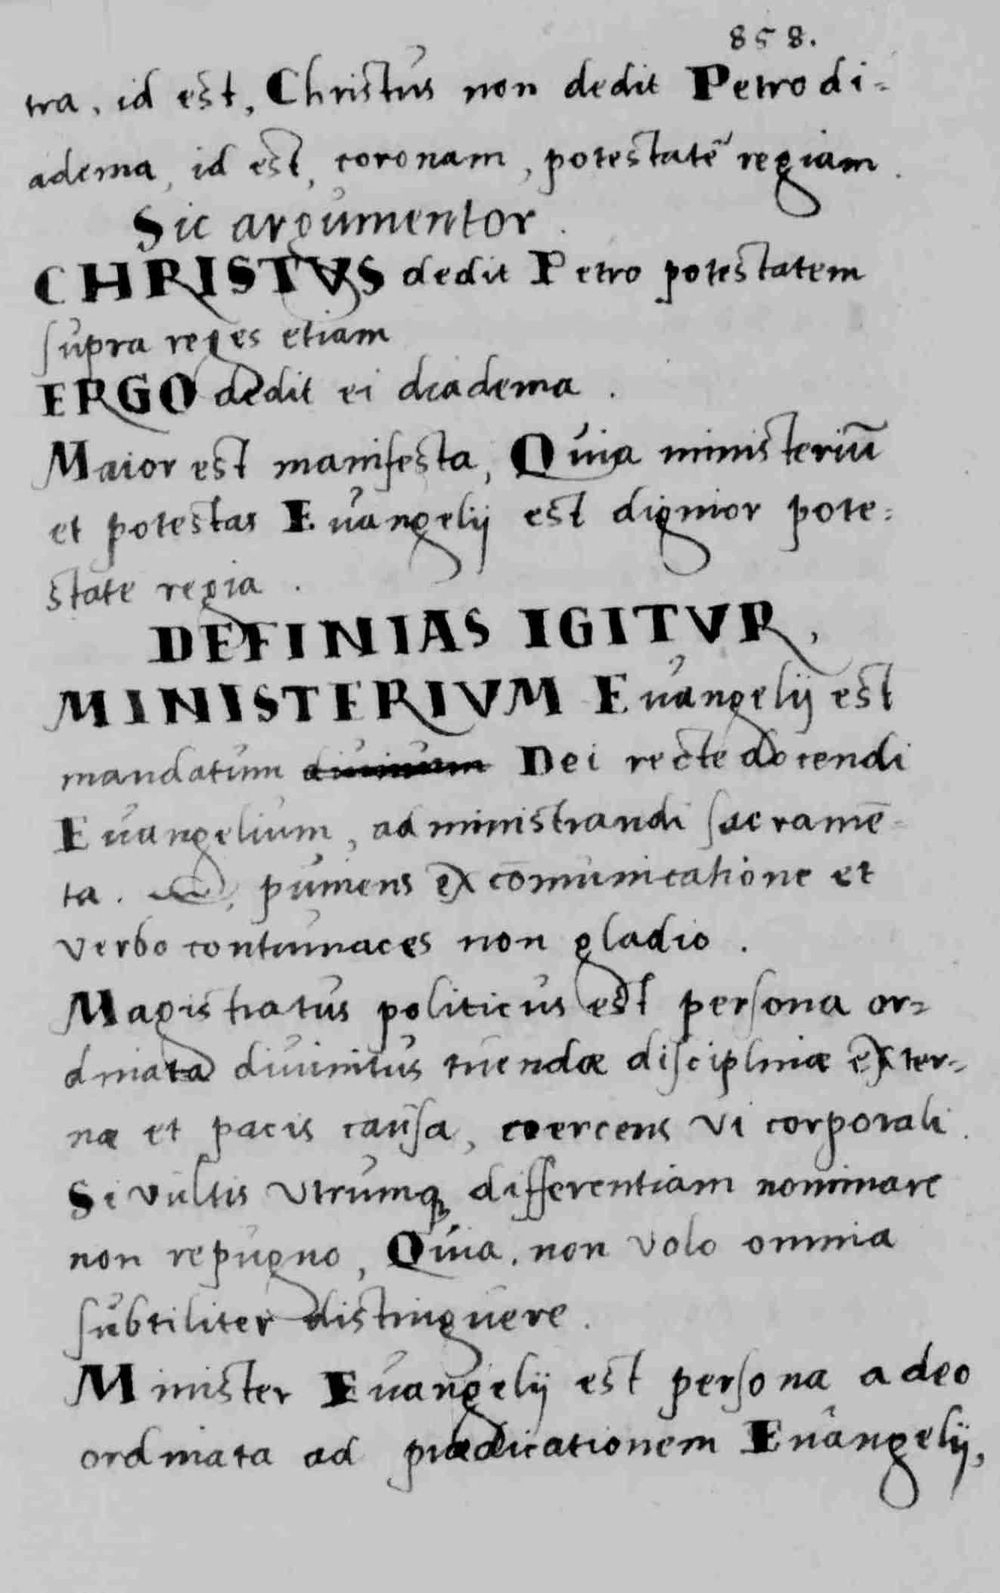 858.
tra, id est, Christus non dedit Petro di-
adema, id est, coronam, potestatē regiam.
Sic argumentor.
CHRISTVS dedit Petro potestatem
supra reges etiam
ERGO dedit ei diadema.
Maior est manifesta, Quia ministeriū
et potestas Euangelij est dignior pote-
state regia.
DEFINIAS IGITVR,
MINISTERIVM Euangelij est
mandatum diuinum Dei recte docendi
Euangelium, administrandi sacramē-
ta. puniens excōmunicatione et
verbo contumaces non gladio.
Magistratus politicus est persona or-
dinata diuinitus tuendæ disciplinæ exter-
næ et pacis causa, coercens vi corporali.
Si vultis vtrumq differentiam nominare
non repugno, Quia, non volo omnia
subtiliter distinguere.
Minister Euangelij est persona a deo
ordinata ad prædicationem Euangelij,